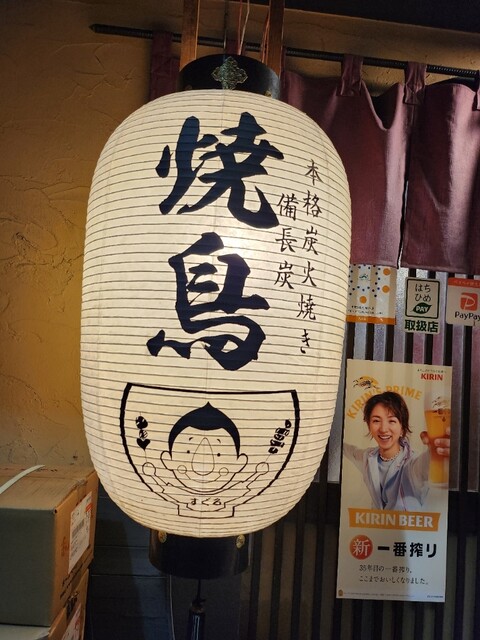 焼鳥
本格炭火焼き
備長炭
まぐろ
はち
ひめ
PAY
取扱店
PayPay
KIRIN
KIRIN'S PRIME
KIRIN BEER
新 一番搾り
35年目の一番搾り。
ここまでおいしくなりました。